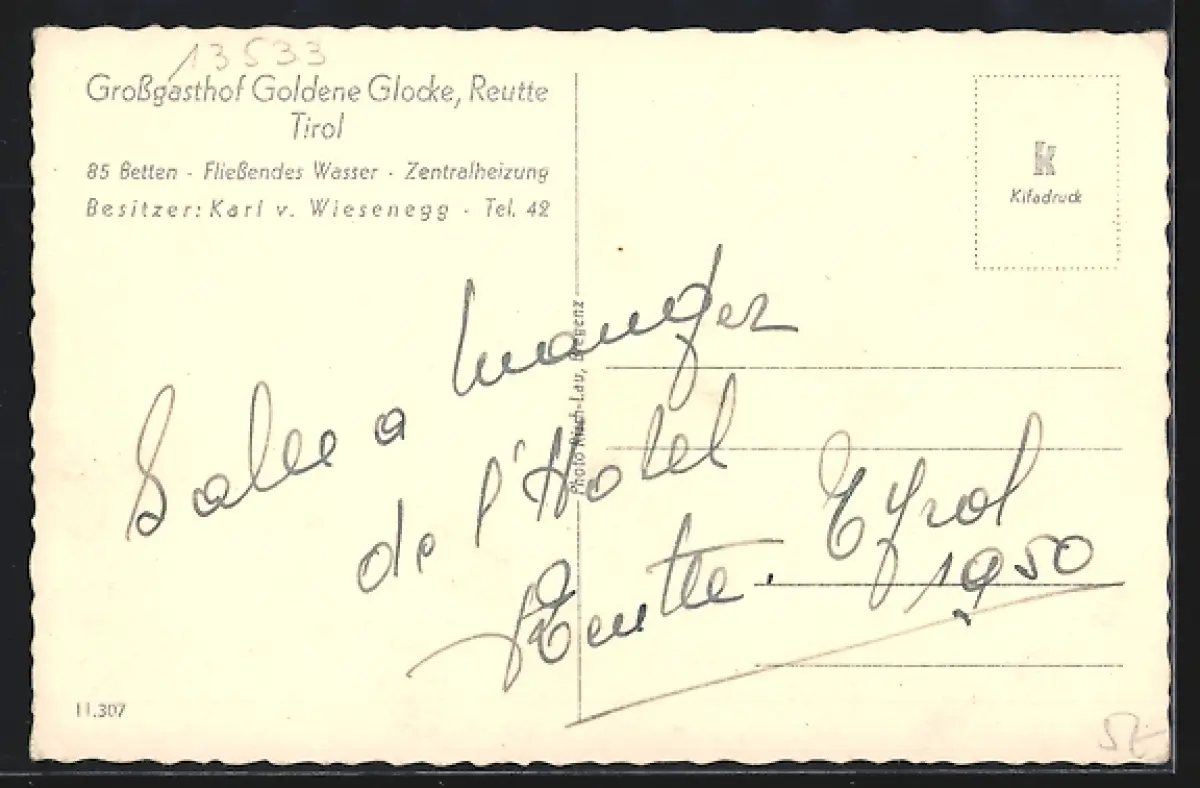 13533
Großgasthof Goldene Glocke, Reutte
Tirol
85 Betten - Fließendes Wasser - Zentralheizung
Besitzer: Karl v. Wiesenegg - Tel. 42
K
Kifadruck
Photo Risch-Lau, Bregenz
Salle a manger
de l'Hotel
Reutte. Tyrol
1950
11.307